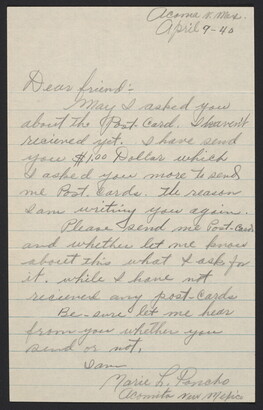 Acome N. Mex.
April 9-40
Dear friend:-
May I asked you
about the Post. Card. I haven't
recieved yet. I have send
you $1.00 Dollar which
I asked you more to send
me Post. Cards. the reason
I am writing you again.
Please send me Post-Card
and whether let me know
about this what I ask for
it. while I have not
recieved any post-Cards
Be-sure let me hear
from you whether you
send or not.
I am
Marie L. Poncho
Acomita New Mexico